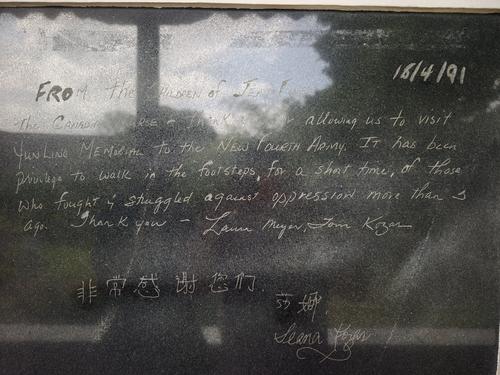 16/4/91
FROM the CHILDREN of JEAN
The CANADIAN NURSE - thank for allowing us to visit
YUNLING MEMORIAL to the NEW FOURTH ARMY. IT has been
privilege to walk in the footsteps, for a short time, of those
who fought & struggled against oppression more than
ago. Thank you - Laura Meyer, Tom Kozar
非常感谢您们
莎娜
Leana Kozar